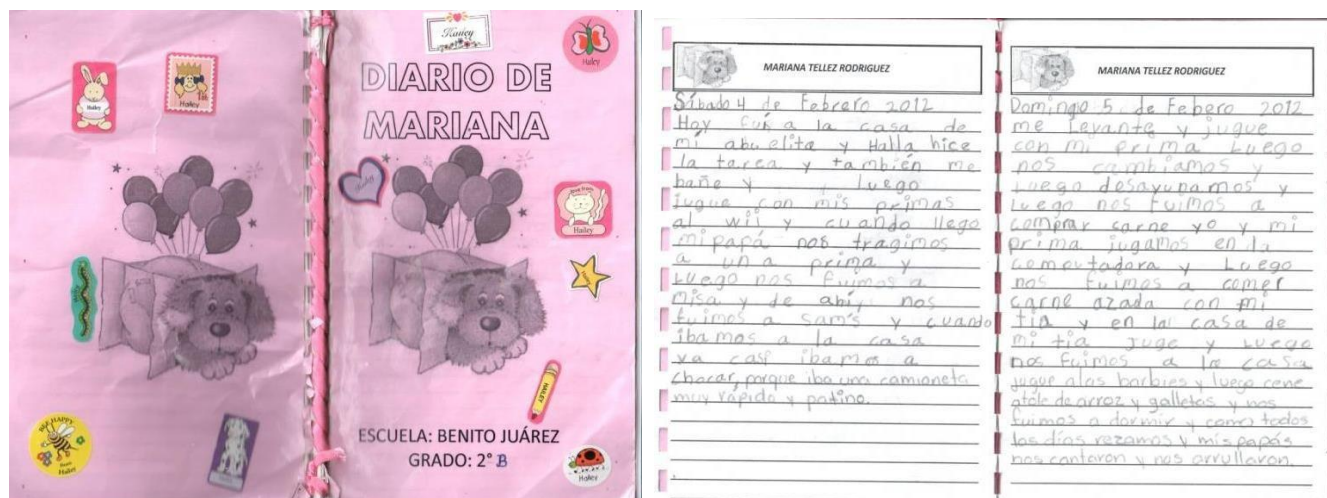 Hailey
Hailey
BEE HAPPY
from
Hailey
Hailey
DIARIO DE
MARIANA
Hailey
Hailey
HAILEY
ESCUELA: BENITO JUÁREZ
GRADO: 2° B
Hailey
MARIANA TELLEZ RODRIGUEZ
Sábado 4 de Febrero 2012
Hoy fui a la casa de
mi abuelita y Halla hice
la tarea y también me
bañe y luego
jugue con mis primas
al wii y cuando llego
mi papá nos tragimos
a una prima y
Luego nos fuimos a
misa y de ahiy nos
fuimos a Sam's y cuando
ibamos a la casa
ya casi ibamos a
chocar, porque iba una camioneta
muy rápido y patino.
MARIANA TELLEZ RODRIGUEZ
Domingo 5 de Febero 2012
me Levante y jugue
con mi prima Luego
nos cambiamos y
Luego desayunamos y
Luego nos fuimos a
comprar carne yo y mi
prima jugamos en la
computadora y Luego
nos fuimos a comer
carne azada con mi
tia y en la casa de
mi tia juge y Luego
nos fuimos a la casa
jugue alas barbies y luego cene
atole de arroz y galletas y nos
fuimos a dormir y como todos
los días rezamos y mis papás
nos cantaron y nos arrullaron